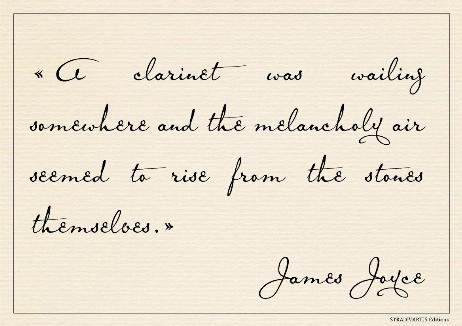 « A clarinet was wailing
somewhere and the melancholy air
seemed to rise from the stones
themselves. »
James Joyce
STRADIVARIUS Editions